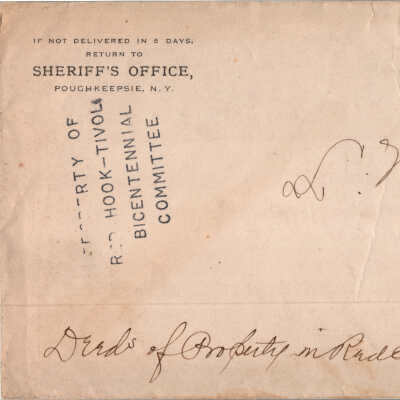 IF NOT DELIVERED IN 5 DAYS,
RETURN TO
SHERIFF'S OFFICE,
POUGHKEEPSIE, N. Y.
PROPERTY OF
RED HOOK-TIVOLI
BICENTENNIAL
COMMITTEE
Deeds of Property in Red